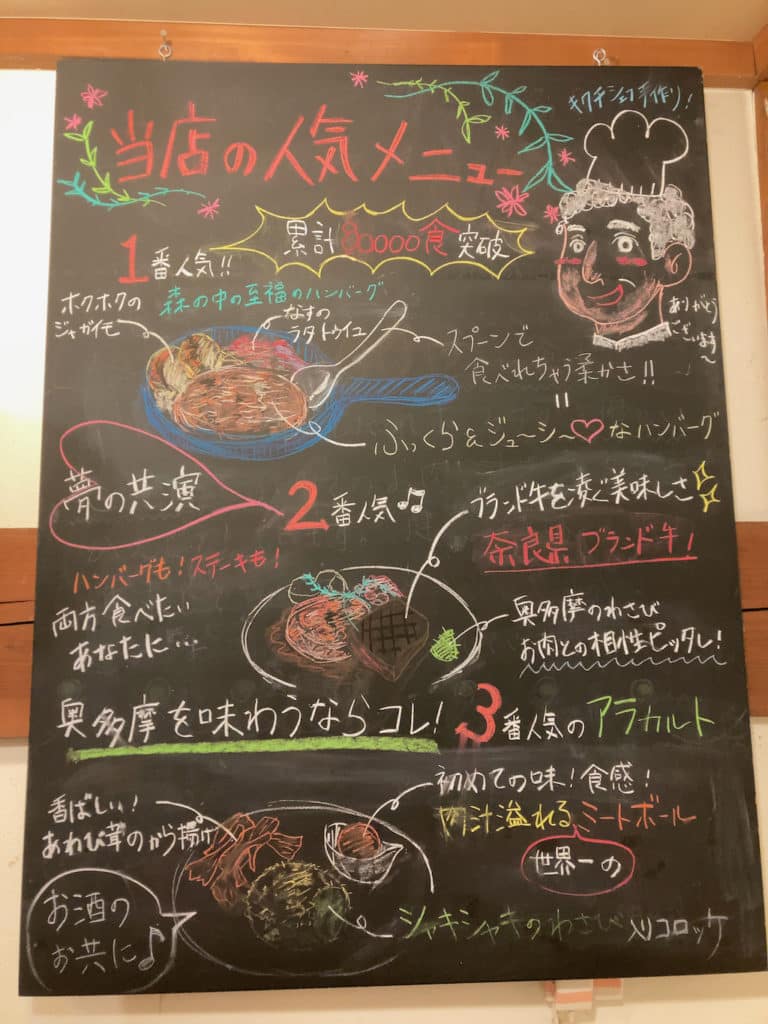 キクチシェフ手作り!
当店の人気メニュー
累計80000食突破
1番人気!!
森の中の至福のハンバーグ
ホクホクの
ジャガイモ
なすの
ラタトゥイユ
スプーンで
食べれちゃう柔かさ!!
=
ふっくら&ジューシ〜♡なハンバーグ
ありがとう
ございます〜
夢の共演
2番人気♫
ブランド牛を凌ぐ美味しさ
奈良県ブランド牛!
ハンバーグも!ステーキも!
両方食べたい
あなたに…
奥多摩のわさび
お肉との相性ピッタレ!
奥多摩を味わうならコレ!
3番人気のアラカルト
初めての味!食感!
肉汁溢れるミートボール
世界一の
香ばしい!
あわび茸のから揚げ
お酒の
お共に♪
シャキシャキのわさび入りコロッケ